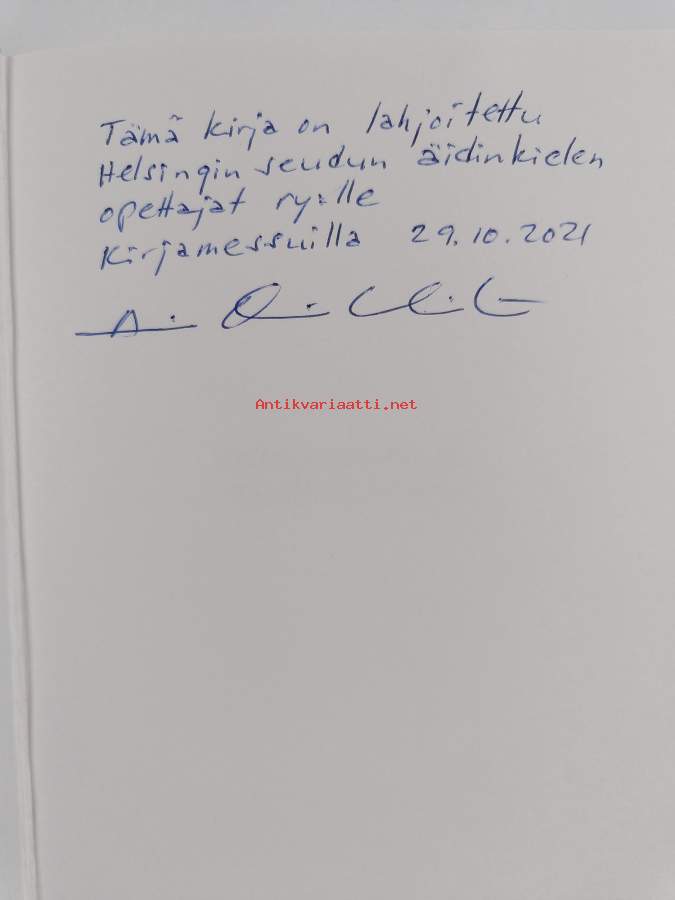 Tämä kirja on lahjoitettu
Helsingin seudun äidinkielen
opettajat ry:lle
Kirjamessuilla 29.10.2021
Antikvariaatti.net